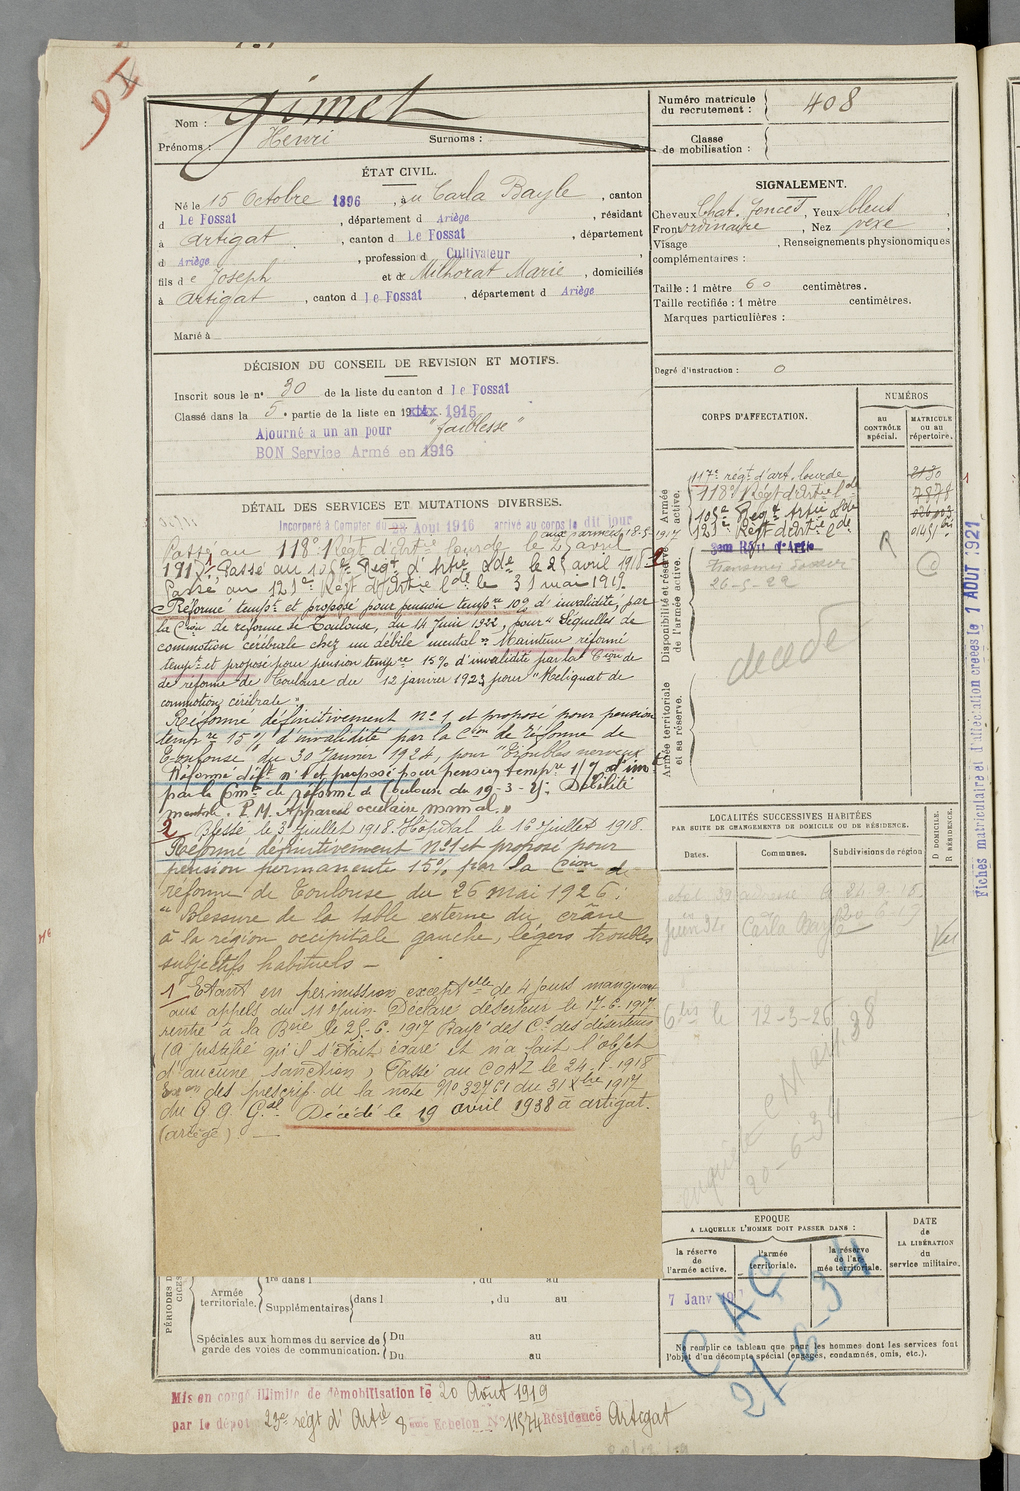 Nom : Gimet
Prénoms : Henri Surnoms :
Numéro matricule du recrutement : 408
Classe de mobilisation :
ÉTAT CIVIL.
Né le 15 Octobre 1896, à Carla Bayle, canton
d Le Fossat, département d Ariège, résidant
à Artigat, canton d Le Fossat, département
d Ariège, profession d Cultivateur
fils de Joseph et de Milhorat Marie, domiciliés
à Artigat, canton d Le Fossat, département d Ariège
Marié à
SIGNALEMENT.
Cheveux Chat. foncés, Yeux bleus,
Front ordinaire, Nez vexe
Visage , Renseignements physionomiques
complémentaires :
Taille : 1 mètre 60 centimètres.
Taille rectifiée : 1 mètre centimètres.
Marques particulières :
Degré d'instruction : 0
DÉCISION DU CONSEIL DE REVISION ET MOTIFS.
Inscrit sous le n° 30 de la liste du canton d Le Fossat
Classé dans la 5e partie de la liste en 1915
Ajourné à un an pour "faiblesse"
BON Service Armé en 1916
DÉTAIL DES SERVICES ET MUTATIONS DIVERSES.
Incorporé à Compter du Aout 1916 arrivé au corps le dit jour
aux armées 18-5-1917
Passé au 118e Régt d'Artie lourde le 25 avril
191 Passé au Regt d'Artie Lde le 25 avril 1918
Passé au 121e Régt d'Artie Lde le 31 mai 1919
Réformé tempre et proposé pour pension tempre 10% d'invalidité, par
la Cion de réforme de Toulouse, du 14 Juin 1922, pour "Séquelles de
commotion cérébrale chez un débile mental" Maintenu réformé
tempre et proposé pour pension tempre 15% d'invalidité par la Cion de
de réforme de Toulouse du 12 janvier 1923 pour "Reliquat de
commotion cérébrale".
Réformé définitivement n° 1 et proposé pour pension
tempre 15% d'invalidité par la Cion de réforme de
Toulouse, du 30 Janvier 1924, pour "Troubles nerveux
Réformé déft n° 1 et proposé pour pension tempre
par la Cion de réforme de Toulouse du 19-3-25: Débilité
mentale. P.M. Appareil oculaire normal."
2 Blessé le 3 Juillet 1918. Hôpital le 16 Juillet 1918.
Réformé définitivement N°1 et proposé pour
pension permanente 15% par la Cion de
réforme de Toulouse du 26 mai 1926:
"Blessure de la table externe du crâne
à la région occipitale gauche, légers troubles
subjectifs habituels -
1 Etant en permission exceptelle de 4 jours manquant
aux appels du 11 Juin. Déclaré déserteur le 17-6-1917
rentré à la Brie le 25-6-1917 Rayé des Cles des déserteurs
(a justifié qu'il s'était égaré et n'a fait l'objet
d'aucune sanction) Passé au COAL le 24-1-1918
des prescrip. de la note N° 32761 du 31 Xbre 1917
du G Q Gal. Décédé le 19 avril 1938 à Artigat.
(Ariège) -
CORPS D'AFFECTATION.
NUMÉROS
au CONTRÔLE spécial.
MATRICULE ou au répertoire.
Armée active.
117e régt d'art. lourde 2130
118e Régt d'Artie Lde 7878
105e Regt Artie Lde
121e Régt d'Artie Lde
Disponibilité et réserve de l'armée active.
3em Rgt d'Artie
26-5-22
R
décédé
Armée territoriale et sa réserve.
LOCALITÉS SUCCESSIVES HABITÉES
PAR SUITE DE CHANGEMENTS DE DOMICILE OU DE RÉSIDENCE.
Dates. Communes. Subdivisions de région D DOMICILE. R RÉSIDENCE.
juin 34 Carla Bayle
Vu
12-3-26
20-6-34
EPOQUE
A LAQUELLE L'HOMME DOIT PASSER DANS :
la réserve de l'armée active.
l'armée territoriale.
la réserve de l'armée territoriale.
DATE de LA LIBÉRATION du service militaire.
7 Janv
CAC
21-6-34
Ne remplir ce tableau que pour les hommes dont les services font
l'objet d'un décompte spécial (engagés, condamnés, omis, etc.).
1re dans l , du au
Armée territoriale.
Supplémentaires dans l , du au
Spéciales aux hommes du service de
garde des voies de communication.
Du au
Du au
Mis en congé illimité de démobilisation le 20 Août 1919
par le dépôt 23e régt d'Artie 8ème Echelon N° 11574 Résidence Artigat
Fiches matriculaire et d'affectation créées le 1 AOUT 1921